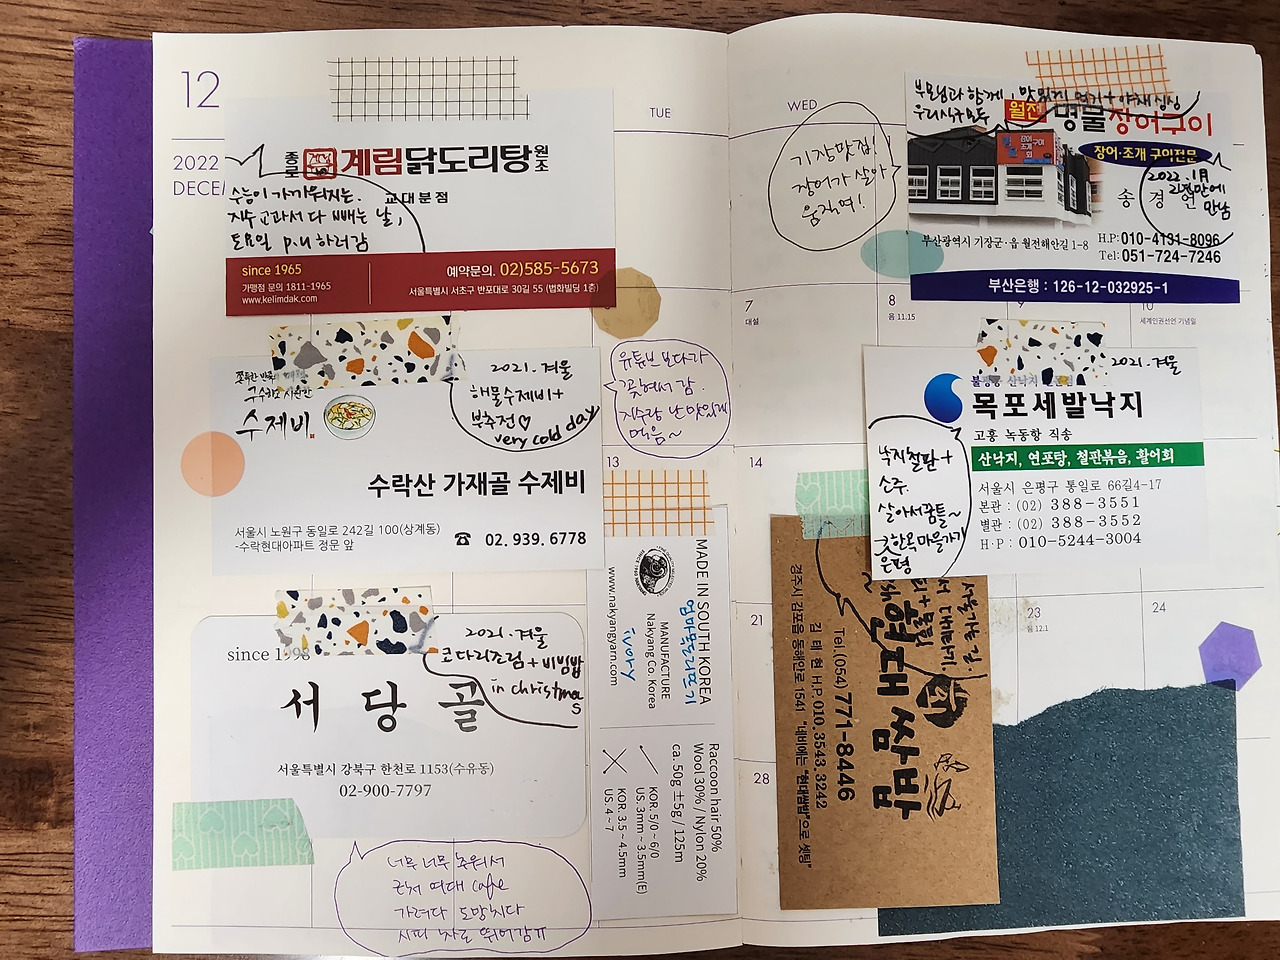 12
2022
DECE
TUE
WED
종로 계림닭도리탕 원조
교대분점
수능이 가까워지는.
지수 교과서 다 빼는 날,
토요일 p.u 하러감
since 1965
가맹점 문의 1811-1965
www.kelimdak.com
예약문의. 02)585-5673
서울특별시 서초구 반포대로 30길 55 (법화빌딩 1층)
기장맛집!
장어가 살아
움직여!
부모님과 함께, 맛있게
우리식구모두
월전 명물장어구이
장어·조개 구이전문
2022. 1月
만에
만남
송 경 언
부산광역시 기장군·읍 월전해안길 1-8
H.P:010-4131-8096
Tel:051-724-7246
부산은행 : 126-12-032925-1
7
대설
8
음 11.15
9
10
세계인권선언 기념일
수제비
2021. 겨울
해물수제비+
부추전♡
very cold day
수락산 가재골 수제비
서울시 노원구 동일로 242길 100(상계동)
-수락현대아파트 정문 앞
☎ 02. 939. 6778
유튜브 보다가
꽂혀서 감.
지수랑 난 맛있게
먹음~
2021. 겨울
목포세발낙지
고흥 녹동항 직송
산낙지, 연포탕, 철판볶음, 활어회
서울시 은평구 통일로 66길4-17
본관 : (02) 388-3551
별관 : (02) 388-3552
H·P : 010-5244-3004
낙지철판+
소주.
살아서꿈틀~
한옥마을가기
은평
13
14
since 1998
2021. 겨울
코다리조림+비빔밥
in christmas
서 당 골
서울특별시 강북구 한천로 1153(수유동)
02-900-7797
너무 너무 추워서
근처 여대 cafe
가려다 도망치다
시피 차로 뛰어감ㅠ
MADE IN SOUTH KOREA
엄마목도리뜨기
MANUFACTURE
Nakyang Co. Korea
ivory
www.nakyangyarn.com
Raccoon hair 50%
Wool 30% / Nylon 20%
ca. 50g ±5g / 125m
KOR. 5/0~6/0
US. 3mm~3.5mm(E)
KOR. 3.5~4.5mm
US. 4~7
21
28
현대쌈밥
Tel. (054) 771-8446
김 태 현 H.P 010.3543.3242
경주시 감포읍 동해안로 1541 "네비에는 "현대쌈밥"으로 셋팅"
23
음 12.1
24